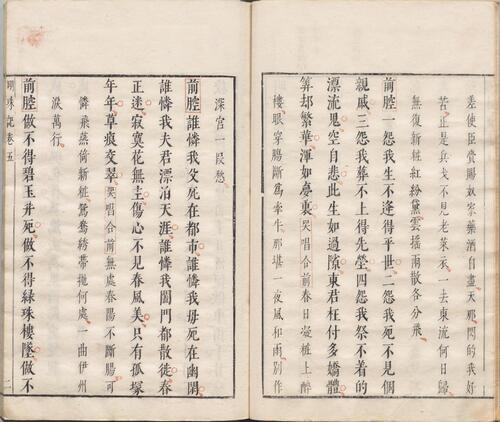 差使臣賫賜奴家藥酒自盡天那閃的我好
苦正是兵戈不見老萊衣一去東流何日歸
無復新粧紅粉黛雲揺雨散各分飛
前腔一怨我生不逢得平世二怨我死不見個
親戚三怨我葬不上得先塋四怨我祭不着的
漂流鬼空自悲此生如過隙東君枉付多嬌體
算却繁華渾如夢裏吴唱合前春日凝粧上
樓眼穿腸斷爲牽牛那堪一夜風和雨别作
深宫一段愁
前腔誰憐我父死在都市誰憐我母死在幽閑
誰憐我夫君漂泊天涯誰憐我闔門都散徙春
正迷寂寞花無主傷心不見春風美只有孤塚
年年草痕交翠吴唱合前無處春陽不斷腸可
憐飛燕倚新粧鴛鴦綉帶抛何處一曲伊州
淚萬行
前腔做不得碧玉井死做不得緑珠樓墜做不
明珠記卷五